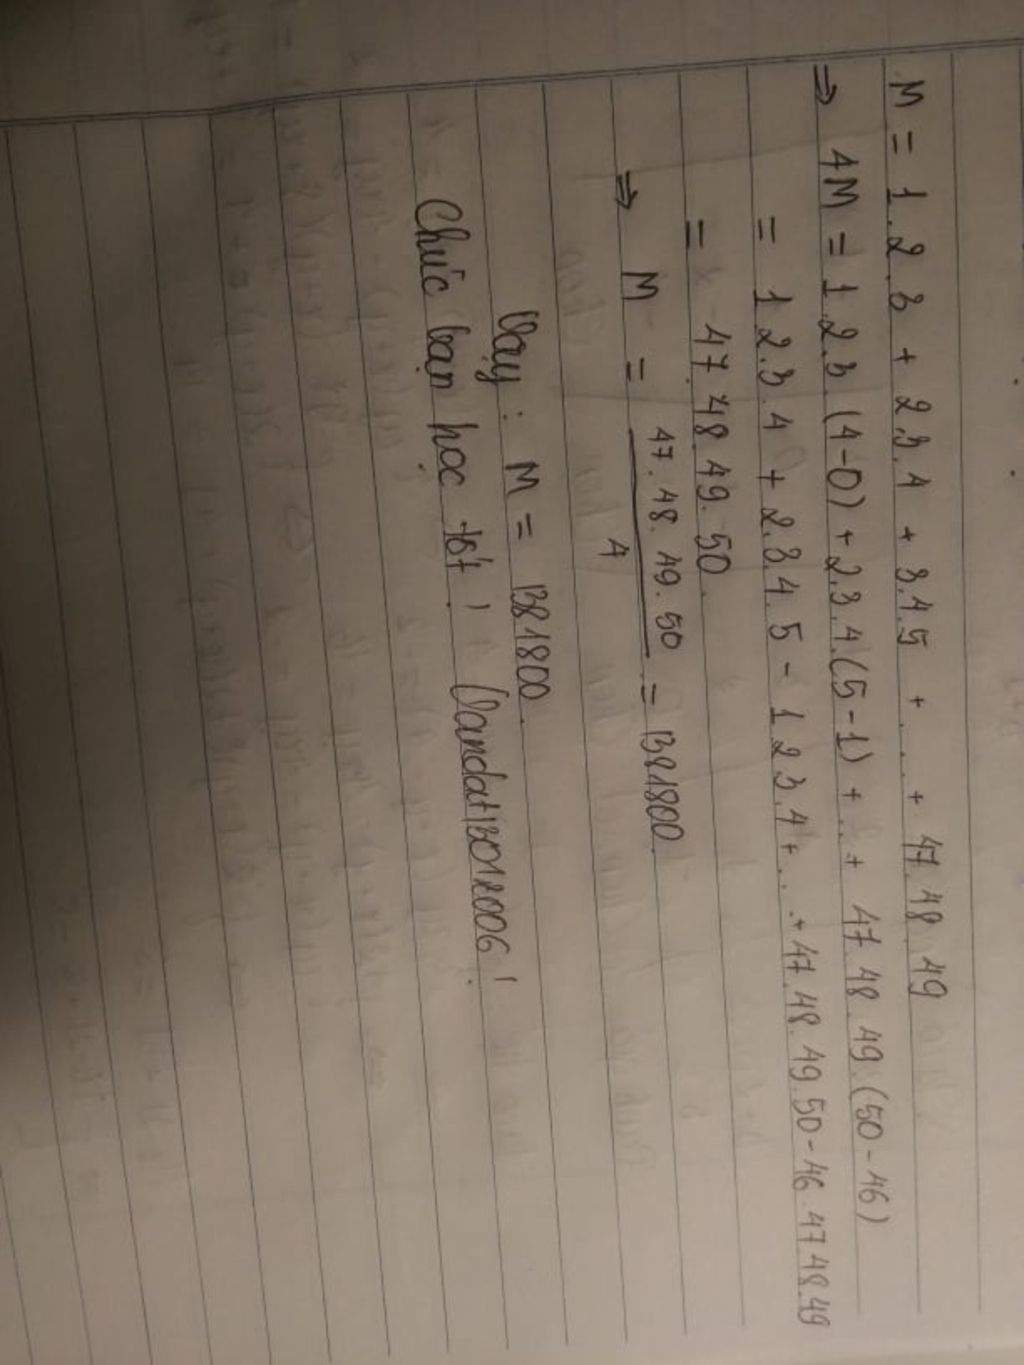 M = 1.2.3 + 2.3.4 + 3.4.5 + ... + 47.48.49
⇒ 4M = 1.2.3.(4-0) + 2.3.4.(5-1) + ... + 47.48.49.(50-46)
= 1.2.3.4 + 2.3.4.5 - 1.2.3.4 + ... + 47.48.49.50 - 46.47.48.49
= 47.48.49.50.
⇒ M = 47.48.49.50 / 4 = 1381800.
Vậy : M = 1381800.
Chúc bạn học tốt ! Vandat13012006 !